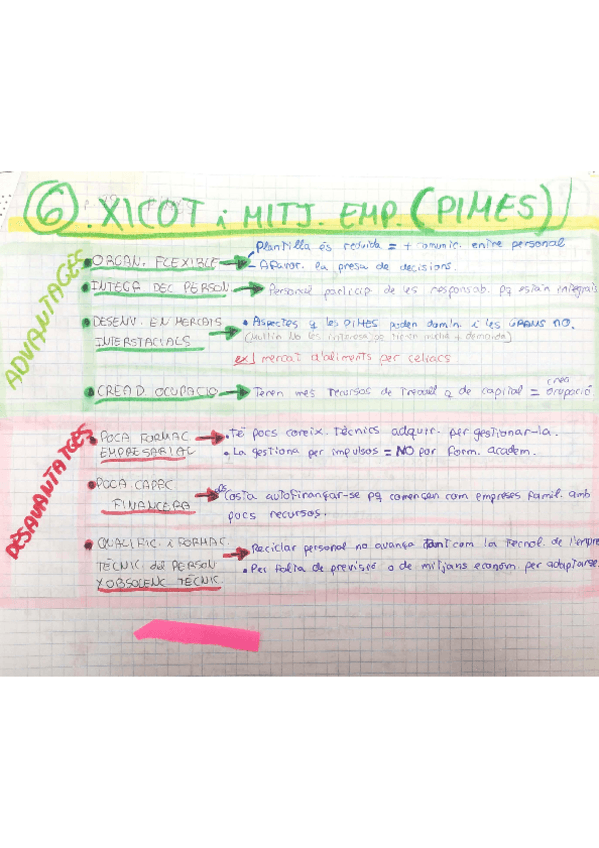 6. XICOT i MITJ. EMP. (PIMES)
ADVANTAGES
• ORGAN. FLEXIBLE → Plantilla és reduida = + comunic. entre personal
- Afavor. la presa de decisions.
• INTEGA DEL PERSON. → Personal particip. de les responsab. pq estàn integrats
• DESENV. EN MERCATS INTERSTACIALS → • Aspectes q les PIMES poden domin. i les GRANS NO.
no les interesa pq tienen mucha + demanda)
ex) mercat d'aliments per celíacs
• CREA D OCUPACIO → Tenen mes recursos de treball q de capital = crea ocupació
DESAVANTATGES
• POCA FORMAC EMPRESARIAL → • Té pocs coneix. tècnics adquir. per gestionar-la.
• La gestiona per impulsos = NO por form. acadèm.
• POCA CAPAC FINANCERA → Costa autofinançar-se pq comencen com empreses famil. amb
pocs recursos.
• QUALIFIC. i FORMAC. TÈCNIC. del PERSON X OBSOLENC TÈCNIC. → Reciclar personal no avança tant com la tecnol. de l'empre
• Per falta de previsió o de mitjans econòm per adaptarse.